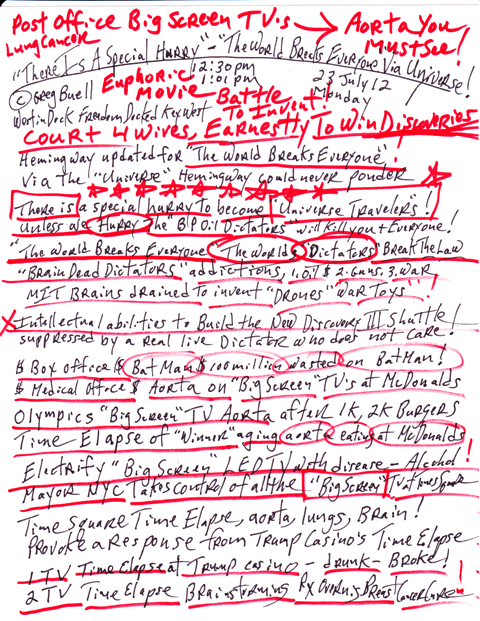 Post Office Big Screen TV's → Aorta You
Lung Cancer Must See!
"There Is A Special Hurry" - "The World Breaks Everyone Via Universe!
12:30pm
© Greg Buell Euphoric 1:01pm 23 July 12
Movie Battle Monday
Westin Dock Freedom Docked Key West To Invent!
Court 4 Wives, Earnestly To Win Discoveries
Hemingway updated for "The World Breaks Everyone",
via the "Universe" Hemingway could never ponder
There is a special hurry to become "Universe Travelers"!
Unless we Hurry the "BP Oil Dictators" will kill you & Everyone!
"The World Breaks Everyone "The Worlds Dictators" Break The Law
"Brain Dead Dictators" addictions, 1.Oil $ 2.Guns 3.War
MIT Brains drained to invent "Drones" War Toys"!
X Intellectual abilities to Build the New Discovery III Shuttle!
suppressed by a real live Dictator who does not care!
$ Box office $ BatMan $100 million wasted on BatMan!
$ Medical Office $ Aorta on "Big Screen" TV's at McDonalds
Olympics "Big Screen" TV Aorta after 1K, 2K Burgers
Time Elapse of "Winner" aging aorta eating at McDonalds
Electrify "Big Screen" LED TV with disease - Alcohol!
Mayor NYC Takes control of all the "Big Screen" TV at Times Square
Time Square Time Elapse, aorta, lungs, Brain!
Provoke a Response from Trump Casino's Time Elapse
1 TV Time Elapse at Trump casino - drunk - Broke!
2 TV Time Elapse Brainstorming Rx Overnis Breast Cancer Cure!